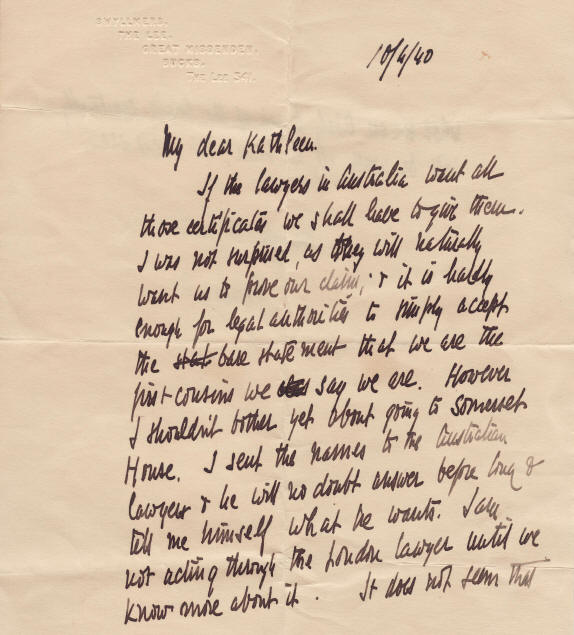 SWYLLMERS.
THE LEE.
GREAT MISSENDEN.
BUCKS.
THE LEE 541.
10/4/40
My dear Kathleen.
If the lawyers in Australia want all
those certificates we shall have to give them.
I was not surprised, as they will naturally
want us to prove our claim, & it is hardly
enough for legal authorities to simply accept
the bare statement that we are the
first cousins we say we are. However
I shouldn't bother yet about going to Somerset
House. I sent the names to the Australian
lawyers & he will no doubt answer before long &
tell me himself what he wants. I am
not acting through the London lawyer until we
know more about it. It does not seem that